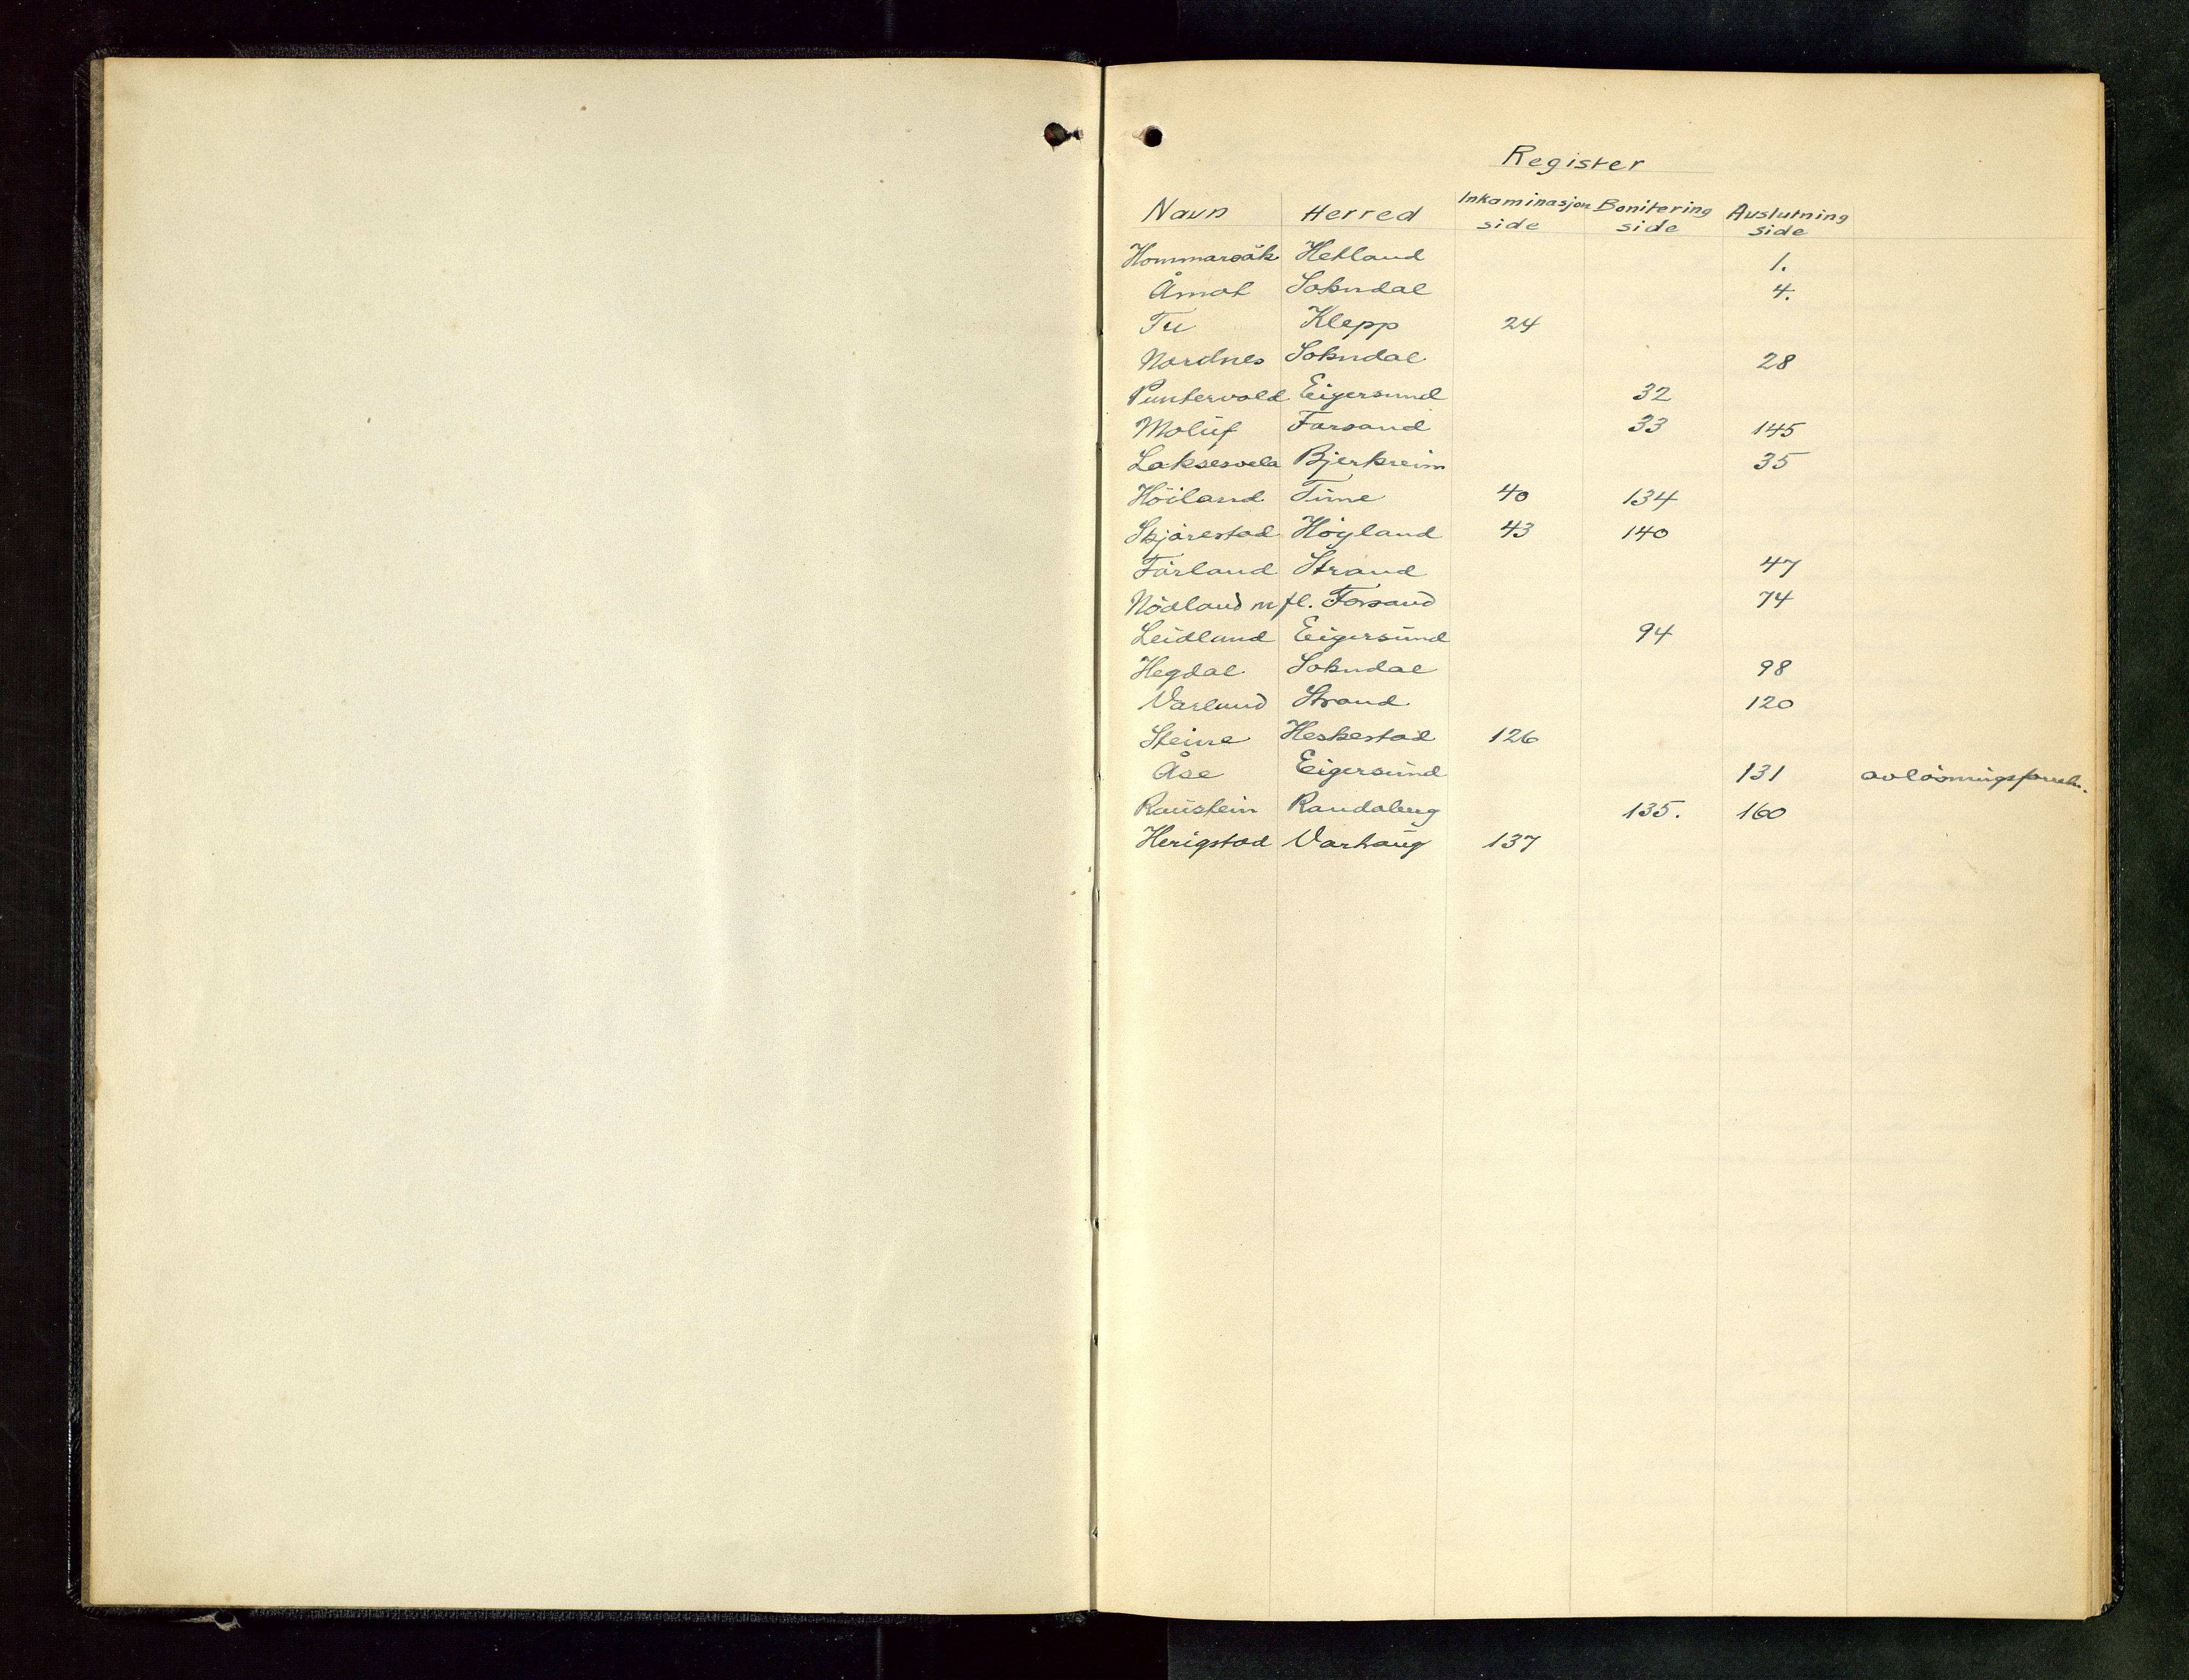 Register
Navn Herred Inkaminasjon side Bonitering side Avslutning side
Hommarsåk Hetland 1.
Åmot Sokndal 4.
Tu Klepp 24
Nordnes Sokndal 28
Puntervold Eigersund 32
Moluf Forsand 33 145
Laksesvela Bjerkreim 35
Höiland Time 40 134
Skjørestad Høyland 43 140
Førland Strand 47
Nödland m fl. Forsand 74
Leidland Eigersund 94
Hegdal Sokndal 98
Varland Strand 120
Steine Heskestad 126
Åse Eigersund 131
Raustein Randaberg 135. 160
Herigstad Varhaug 137